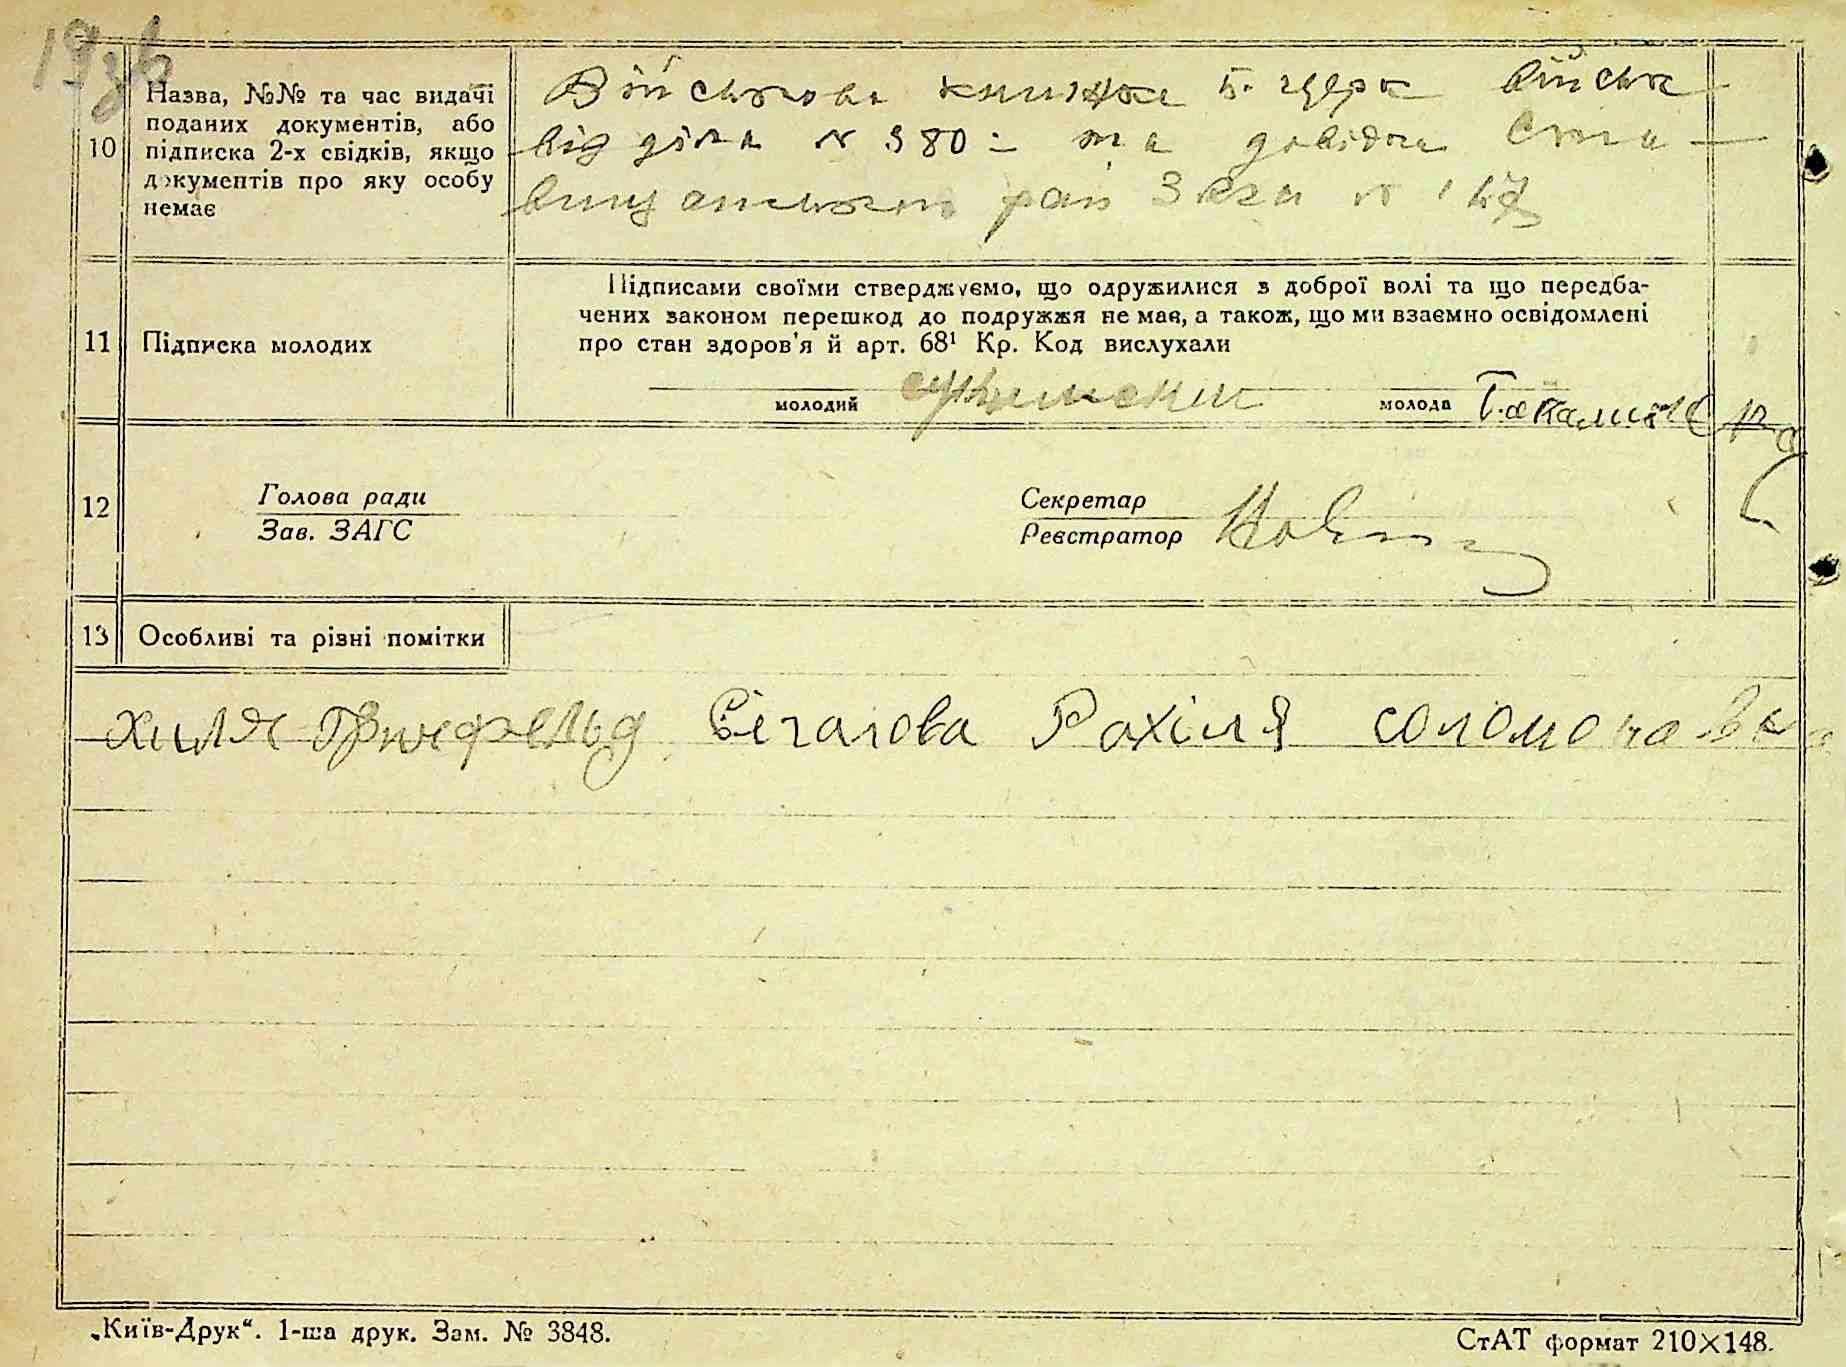 10
Назва, №№ та час видачі
поданих документів, або
підписка 2-х свідків, якщо
документів про яку особу
немає
Військова книжка Б. Церк військ
відділа № 980 - та довідка Ста-
вищанського рай
11
Підписка молодих
Підписами своїми стверджуємо, що одружилися з доброї волі та що передба-
чених законом перешкод до подружжя не має, а також, що ми взаємно освідомлені
про стан здоров'я й арт. 68¹ Кр. Код вислухали
молодий молода
12
Голова ради
Зав. ЗАГС
Секретар
Реєстратор
13 Особливі та різні помітки
хиля Гринфельд Сігалова Рахіля соломоновна
„Київ-Друк“. 1-ша друк. Зам. № 3848.
СтАТ формат 210×148.